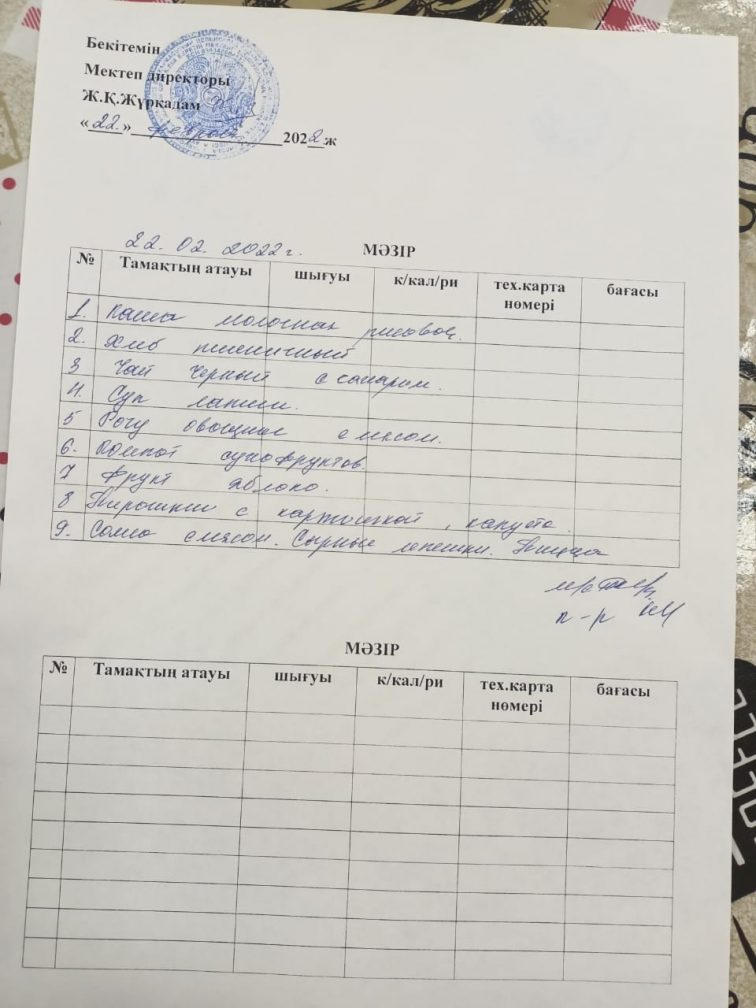 Бекітемін
Мектеп директоры
Ж.Қ.Жүрқадам
«22» февраль 2022 ж
22. 02. 2022 г. МӘЗІР
№ Тамақтың атауы шығуы к/кал/ри тех.карта нөмері бағасы
1. Каша молочная рисовая.
2. Хлеб пшеничный
3 Чай черный с сахаром.
4. Суп лапша.
5 Рагу овощное с мясом.
6. Компот сухофруктов.
7 Фрукт яблоко.
8 Пирошки с картошкой, капуста.
9. Самса с мясом. Сырные лепешки. Пицца
МӘЗІР
№ Тамақтың атауы шығуы к/кал/ри тех.карта нөмері бағасы